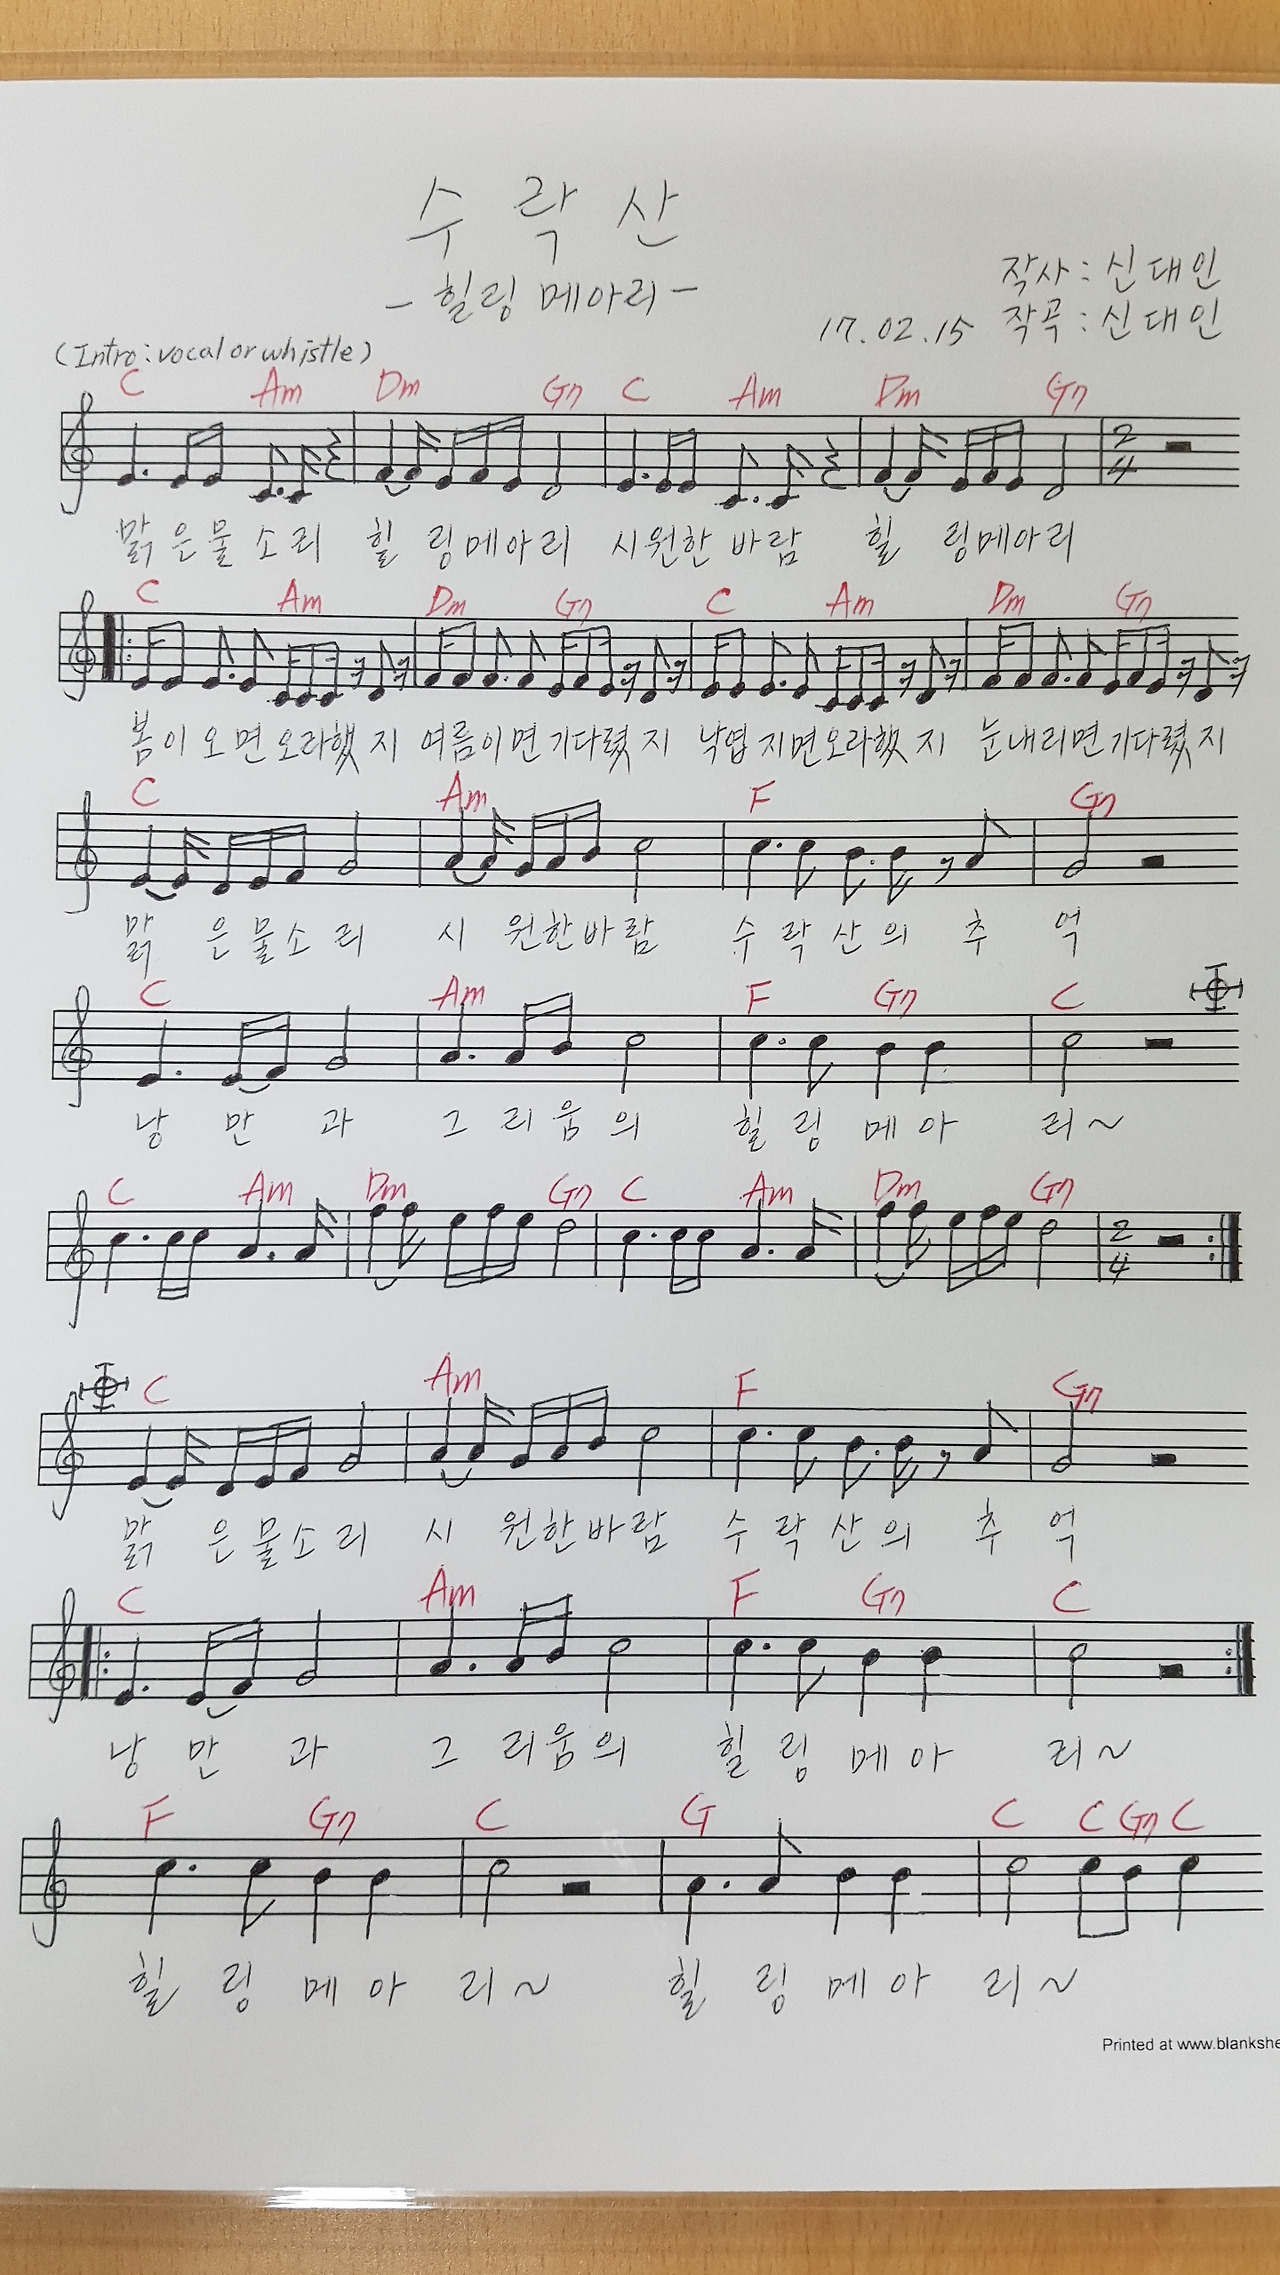 수락산
- 힐링 메아리 -
작사 : 신대인
17.02.15 작곡 : 신대인
(Intro : vocal or whistle)
C Am Dm G7 C Am Dm G7
2/4
맑은물소리 힐링메아리 시원한바람 힐링메아리
C Am Dm G7 C Am Dm G7
봄이오면오라했지 여름이면기다렸지 낙엽지면오라했지 눈내리면기다렸지
C Am F G7
맑은물소리 시원한바람 수락산의추억
C Am F G7 C
낭만과 그리움의 힐링메아리~
C Am Dm G7 C Am Dm G7
2/4
C Am F G7
맑은물소리 시원한바람 수락산의추억
C Am F G7 C
낭만과 그리움의 힐링메아리~
F G7 C G C C G7 C
힐링메아리~ 힐링메아리~
Printed at www.blankshe